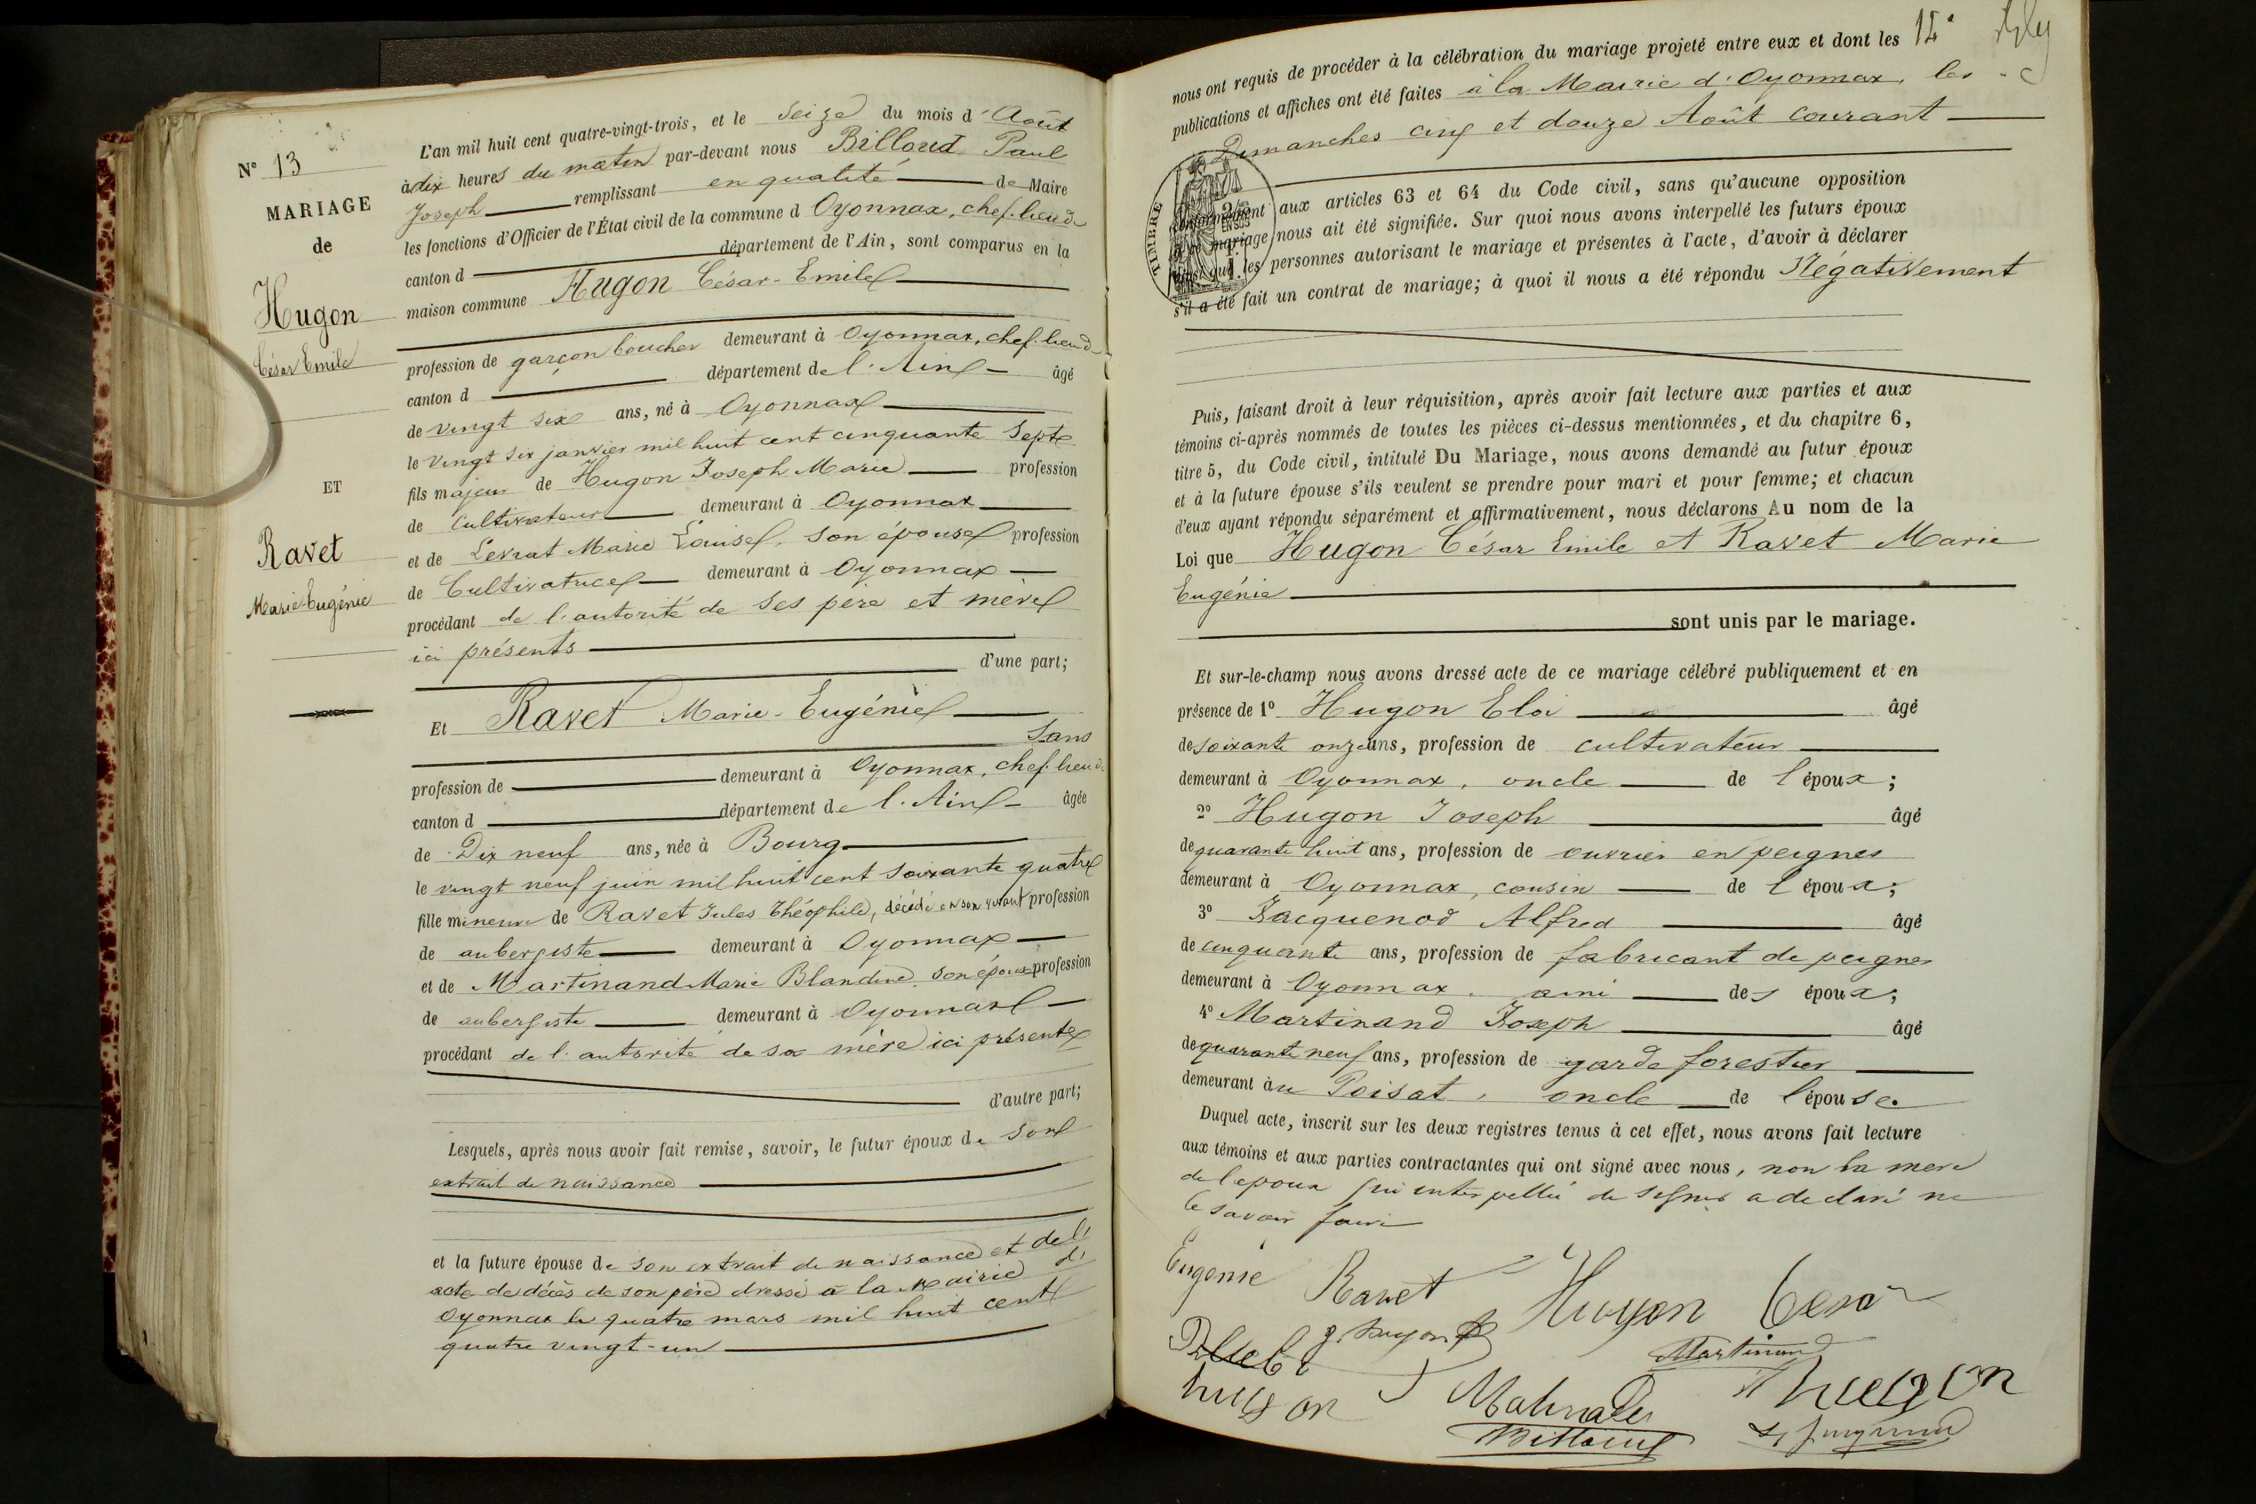 N° 13
MARIAGE
de
Hugon
César Emile
ET
Ravet
Marie-Eugénie
L'an mil huit cent quatre-vingt-trois, et le Seize du mois d'Août
à dix heures du matin par-devant nous Billoud Paul
Joseph remplissant en qualité de Maire
les fonctions d'Officier de l'État civil de la commune d Oyonnax, chef-lieu de
canton d département de l'Ain, sont comparus en la
maison commune Hugon César-Emile
profession de garçon boucher demeurant à Oyonnax, chef-lieu de
canton d département de l'Ain âgé
de vingt six ans, né à Oyonnax
le vingt six janvier mil huit cent cinquante Sept
fils majeur de Hugon Joseph Marie profession
de Cultivateur demeurant à Oyonnax
et de Levrat Marie Louise, son épouse profession
de Cultivatrice demeurant à Oyonnax
procédant de l'autorité de ses père et mère
ici présents
d'une part;
Et Ravet Marie-Eugénie
Sans
profession de demeurant à Oyonnax, chef-lieu de
canton d département de l'Ain âgée
de Dix neuf ans, née à Bourg
le vingt neuf juin mil huit cent soixante quatre
fille mineure de Ravet Jules Théophile, décédé en son vivant profession
de aubergiste demeurant à Oyonnax
et de Martinand Marie Blandine son épouse profession
de aubergiste demeurant à Oyonnax
procédant de l'autorité de sa mère ici présente
d'autre part;
Lesquels, après nous avoir fait remise, savoir, le futur époux de son
extrait de naissance
et la future épouse de son extrait de naissance et de l'
acte de décès de son père dressé à la mairie d'
Oyonnax le quatre mars mil huit cent
quatre vingt-un
nous ont requis de procéder à la célébration du mariage projeté entre eux et dont les
publications et affiches ont été faites à la Mairie d'Oyonnax, les
Dimanches cinq et douze Août courant
TIMBRE
conformément aux articles 63 et 64 du Code civil, sans qu'aucune opposition
à ce mariage nous ait été signifiée. Sur quoi nous avons interpellé les futurs époux
ainsi que les personnes autorisant le mariage et présentes à l'acte, d'avoir à déclarer
s'il a été fait un contrat de mariage; à quoi il nous a été répondu Négativement
Puis, faisant droit à leur réquisition, après avoir fait lecture aux parties et aux
témoins ci-après nommés de toutes les pièces ci-dessus mentionnées, et du chapitre 6,
titre 5, du Code civil, intitulé Du Mariage, nous avons demandé au futur époux
et à la future épouse s'ils veulent se prendre pour mari et pour femme; et chacun
d'eux ayant répondu séparément et affirmativement, nous déclarons Au nom de la
Loi que Hugon César Emile et Ravet Marie
Eugénie
sont unis par le mariage.
Et sur-le-champ nous avons dressé acte de ce mariage célébré publiquement et en
présence de 1° Hugon Eloi âgé
de soixante onze ans, profession de cultivateur
demeurant à Oyonnax, oncle de l'époux;
2° Hugon Joseph âgé
de quarante huit ans, profession de ouvrier en peignes
demeurant à Oyonnax, cousin de l'époux;
3° Jacquenod Alfred âgé
de cinquante ans, profession de fabricant de peignes
demeurant à Oyonnax, ami des époux;
4° Martinand Joseph âgé
de quarante neuf ans, profession de garde forestier
demeurant au Poisat, oncle de l'épouse.
Duquel acte, inscrit sur les deux registres tenus à cet effet, nous avons fait lecture
aux témoins et aux parties contractantes qui ont signé avec nous, non la mère
de l'époux qui interpellée de signer a déclaré ne
le savoir faire
Eugénie Ravet Hugon César
J. hugon
Martinand
hugon
hugon
Billoud